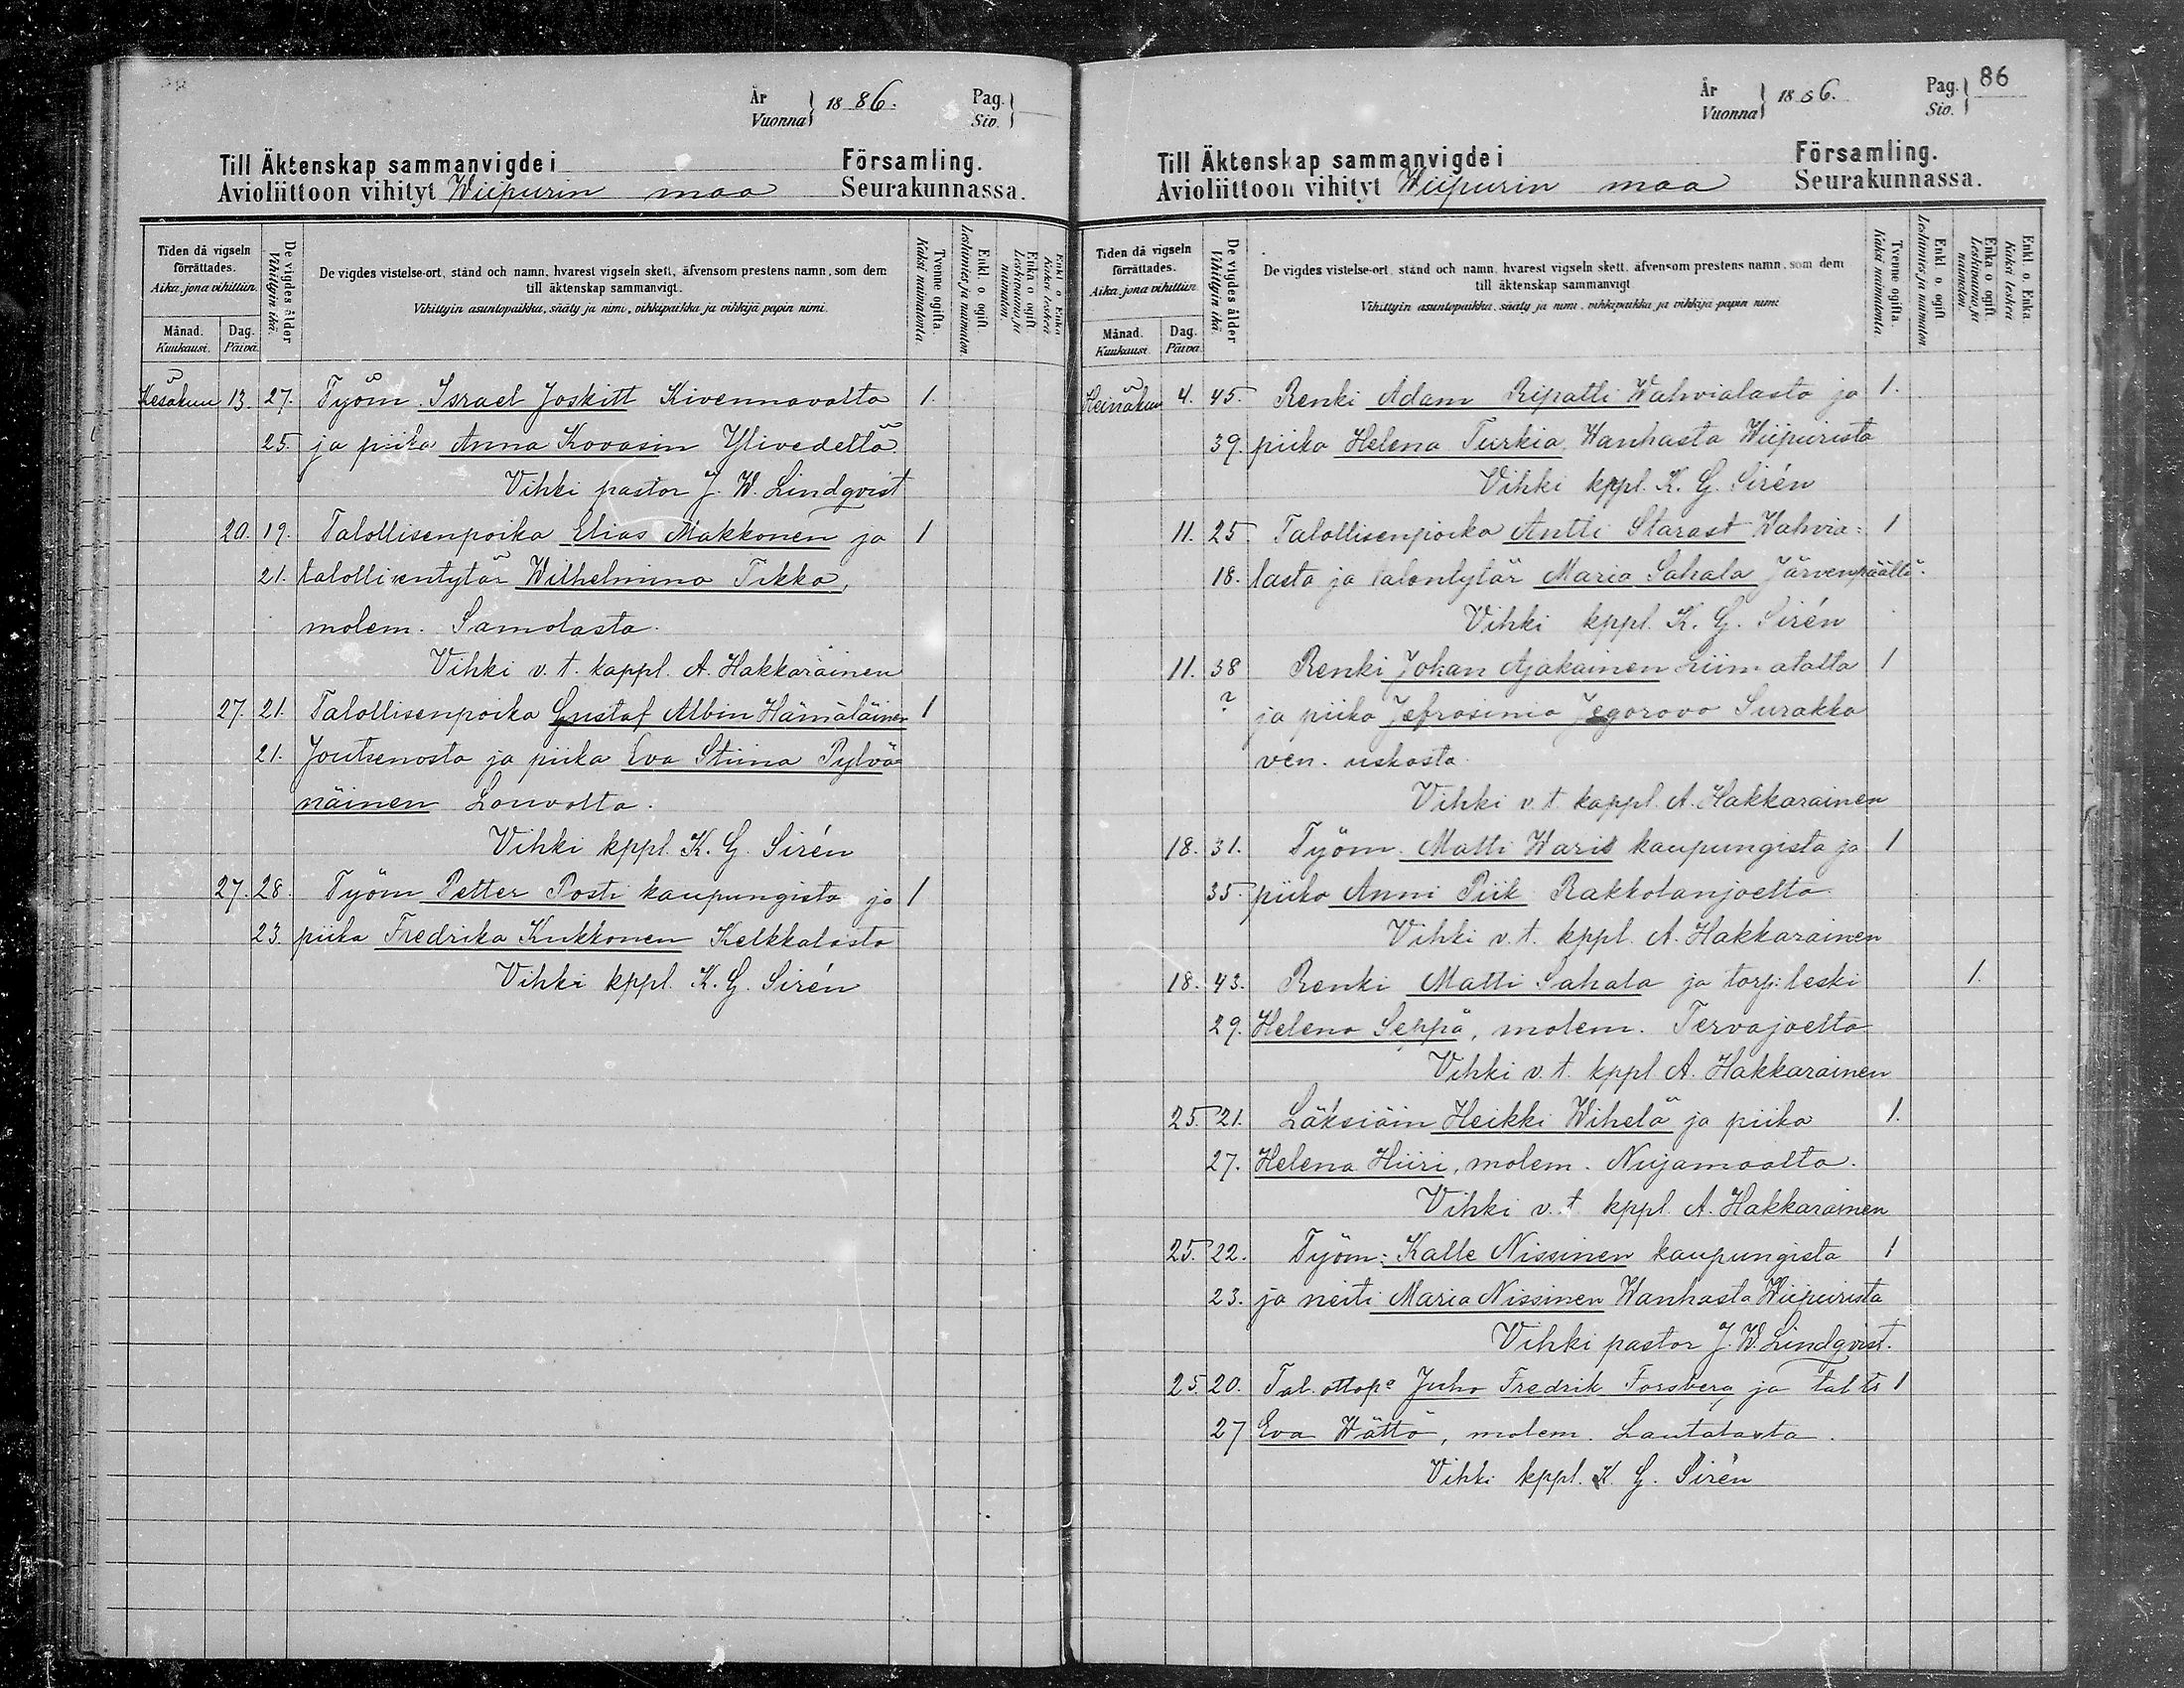 År
Vuonna } 1886. Pag.
Siv.
Till Äktenskap sammanvigde i Församling.
Avioliittoon vihityt Wiipurin maa Seurakunnassa.
Tiden då vigseln förrättades.
Aika, jona vihittiin.
Månad.
Kuukausi.
Dag.
Päivä.
De vigdes ålder
Vihittyin ikä.
De vigdes vistelse-ort, stånd och namn, hvarest vigseln skett, äfvensom prestens namn, som dem
till äktenskap sammanvigt.
Vihittyin asuntopaikka, sääty ja nimi, vihkipaikka ja vihkijä papin nimi.
Tvenne ogifta.
Kaksi naimatonta.
Enkl. o. ogift.
Leskimies ja naimaton.
Enka o. ogift.
Leskivaimo ja naimaton.
Enkl. o. Enka
Kaksi leskeä
Kesäkuu 13. 27. Työm. Israel Joskitt Kivennavalta 1.
25. ja piika Anna Kovasin Ylivedeltä
Vihki pastor J. W. Lindqvist
20. 19. Talollisenpoika Elias Makkonen ja 1
21. talollisentytär Wilhelmina Tikka,
molem. Samolasta.
Vihki v. t. kappl. A. Hakkarainen
27. 21. Talollisenpoika Gustaf Albin Hämäläinen 1
21. Joutsenosta ja piika Eva Stiina Pylvä-
näinen Louvolta.
Vihki kppl. K. G. Sirén
27. 28. Työm Petter Posti kaupungista ja 1
23. piika Fredrika Kukkonen Kelkkalasta
Vihki kppl. K. G. Sirén
År
Vuonna } 1886. Pag. 86
Siv.
Till Äktenskap sammanvigde i Församling.
Avioliittoon vihityt Wiipurin maa Seurakunnassa.
Tiden då vigseln förrättades.
Aika, jona vihittiin.
Månad.
Kuukausi.
Dag.
Päivä.
De vigdes ålder
Vihittyin ikä.
De vigdes vistelse-ort, stånd och namn, hvarest vigseln skett, äfvensom prestens namn, som dem
till äktenskap sammanvigt.
Vihittyin asuntopaikka, sääty ja nimi, vihkipaikka ja vihkijä papin nimi.
Tvenne ogifta.
Kaksi naimatonta.
Enkl. o. ogift.
Leskimies ja naimaton.
Enka o. ogift.
Leskivaimo ja naimaton.
Enkl. o. Enka.
Kaksi leskeä
Heinäkuu 4. 45. Renki Adam Ripatti Wahvialasta ja 1.
39. piika Helena Turkia Wanhasta Wiipurista
Vihki kppl. K. G. Sirén
11. 25 Talollisenpoika Antti Starast Wahvia= 1
18. lasta ja talontytär Maria Sahala Järvenpäältä.
Vihki kppl. K. G. Sirén
11. 38 Renki Johan Ajakainen Liimatalta 1
? ja piika Jefrosinia Jegorovo Surakka
ven. uskosta.
Vihki v. t. kappl. A. Hakkarainen
18. 31. Työm. Matti Waris kaupungista ja 1
35. piika Anni Piik Rakkolanjoelta
Vihki v. t. kppl. A. Hakkarainen
18. 43. Renki Matti Sahala ja torp: leski 1.
29. Helena Seppä, molem. Tervajoelta
Vihki v. t. kppl A. Hakkarainen
25. 21. Läksiäin Heikki Wihelä ja piika 1.
27. Helena Hiiri, molem. Nujamaalta.
Vihki v. t kppl. A. Hakkarainen
25. 22. Työm: Kalle Nissinen kaupungista 1
23. ja neiti Maria Nissinen Wanhasta Wiipurista
Vihki pastor J. W. Lindqvist.
25. 20. Tal. ottopa Juho Fredrik Forsberg ja tal ts 1
27 Eva Wättö, molem. Lautalasta.
Vihki kppl. K. G. Sirén